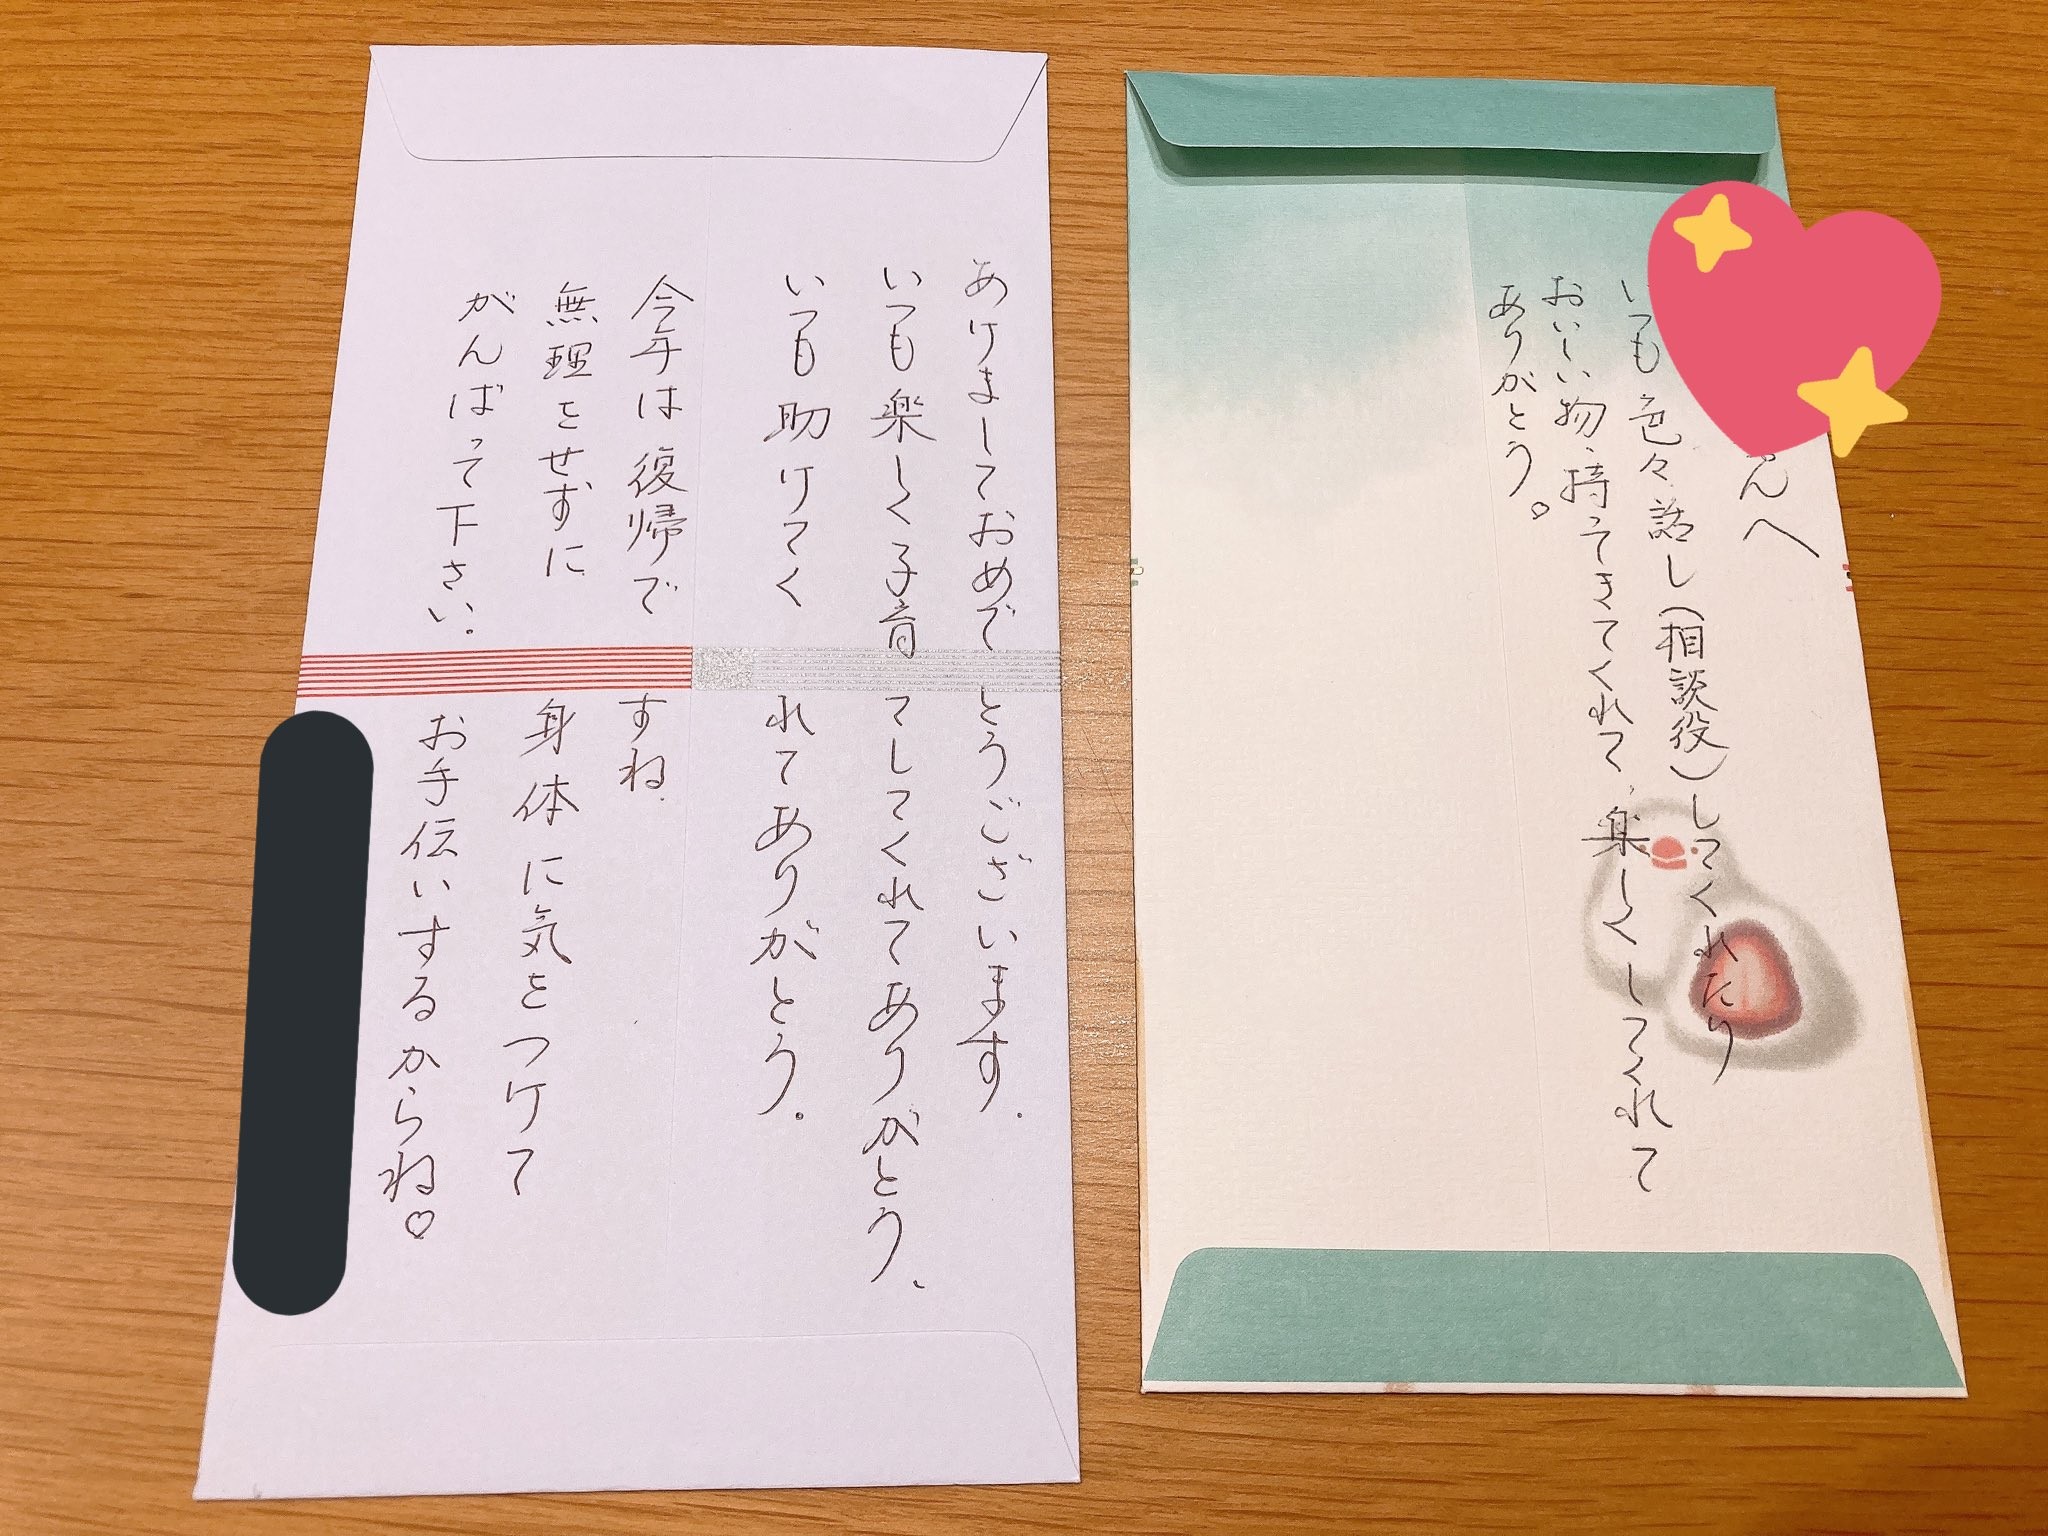 あけましておめでとうございます.
いつも楽しく子育てしてくれてありがとう、
いつも助けてくれてありがとう。
今年は復帰ですね.
無理をせずに身体に気をつけて
がんばって下さい。お手伝いするからね♡
んへ
いつも色々話し(相談役)してくれたり
おいしい物、持ってきてくれて、楽しくしてくれて
ありがとう。